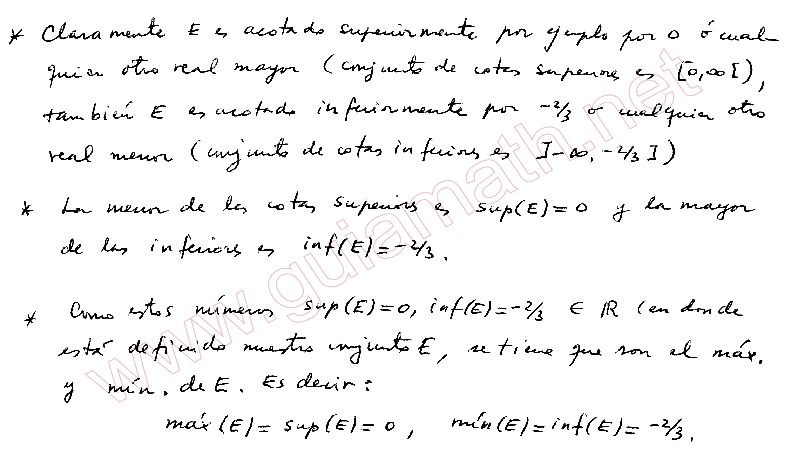 * Claramente E es acotado superiormente por ejemplo por 0 ó cual-
quier otro real mayor (conjunto de cotas superiores es [0,∞[),
también E es acotado inferiormente por -2/3 o cualquier otro
real menor (conjunto de cotas inferiores es ]-∞,-2/3])
* La menor de las cotas superiores es sup(E)=0 y la mayor
de las inferiores es inf(E)=-2/3.
* Como estos números sup(E)=0, inf(E)=-2/3 ∈ ℝ (en donde
está definido nuestro conjunto E, se tiene que son el máx.
y mín. de E. Es decir:
máx(E)= sup(E)=0, mín(E)=inf(E)=-2/3.
www.guiamath.net